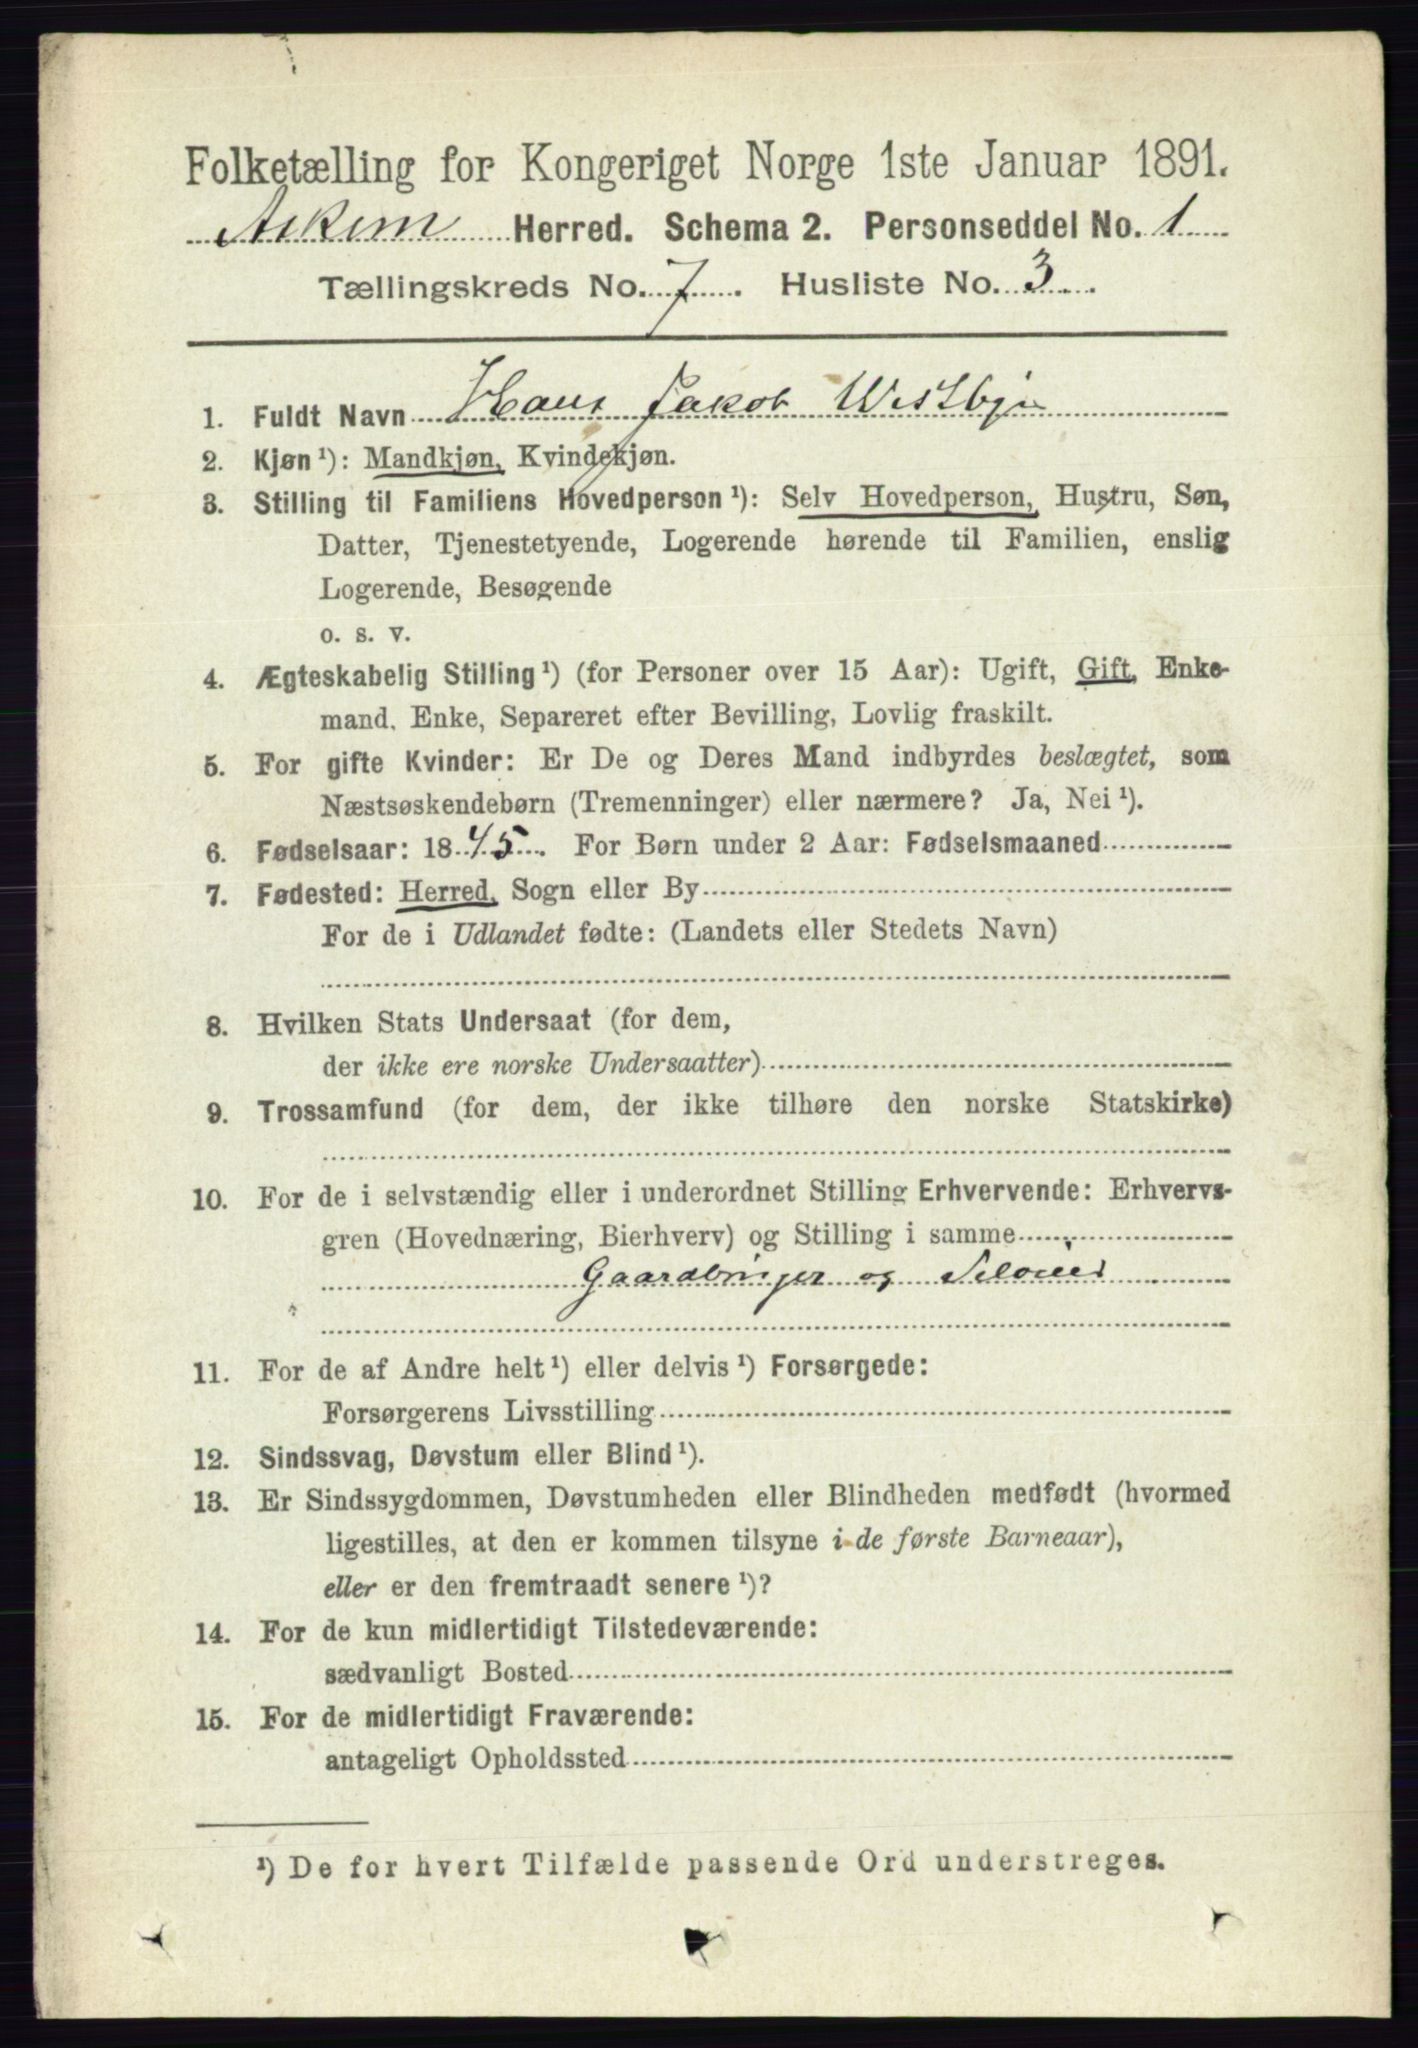 Folketælling for Kongeriget Norge 1ste Januar 1891.
Askim Herred. Schema 2. Personseddel No. 1
Tællingskreds No. 7. Husliste No. 3
1. Fuldt Navn Hans Jakob Westbye
2. Kjøn ¹): Mandkjøn, Kvindekjøn.
3. Stilling til Familiens Hovedperson ¹): Selv Hovedperson, Hustru, Søn,
Datter, Tjenestetyende, Logerende hørende til Familien, enslig
Logerende, Besøgende
o. s. v.
4. Ægteskabelig Stilling ¹) (for Personer over 15 Aar): Ugift, Gift, Enke-
mand, Enke, Separeret efter Bevilling, Lovlig fraskilt.
5. For gifte Kvinder: Er De og Deres Mand indbyrdes beslægtet, som
Næstsøskendebørn (Tremenninger) eller nærmere? Ja, Nei ¹).
6. Fødselsaar: 1845. For Børn under 2 Aar: Fødselsmaaned
7. Fødested: Herred, Sogn eller By
For de i Udlandet fødte: (Landets eller Stedets Navn)
8. Hvilken Stats Undersaat (for dem,
der ikke ere norske Undersaatter)
9. Trossamfund (for dem, der ikke tilhøre den norske Statskirke)
10. For de i selvstændig eller i underordnet Stilling Erhvervende: Erhvervs-
gren (Hovednæring, Bierhverv) og Stilling i samme
Gaardbruger og Seloeier
11. For de af Andre helt ¹) eller delvis ¹) Forsørgede:
Forsørgerens Livsstilling
12. Sindssvag, Døvstum eller Blind ¹).
13. Er Sindssygdommen, Døvstumheden eller Blindheden medfødt (hvormed
ligestilles, at den er kommen tilsyne i de første Barneaar),
eller er den fremtraadt senere ¹)?
14. For de kun midlertidigt Tilstedeværende:
sædvanligt Bosted
15. For de midlertidigt Fraværende:
antageligt Opholdssted
¹) De for hvert Tilfælde passende Ord understreges.